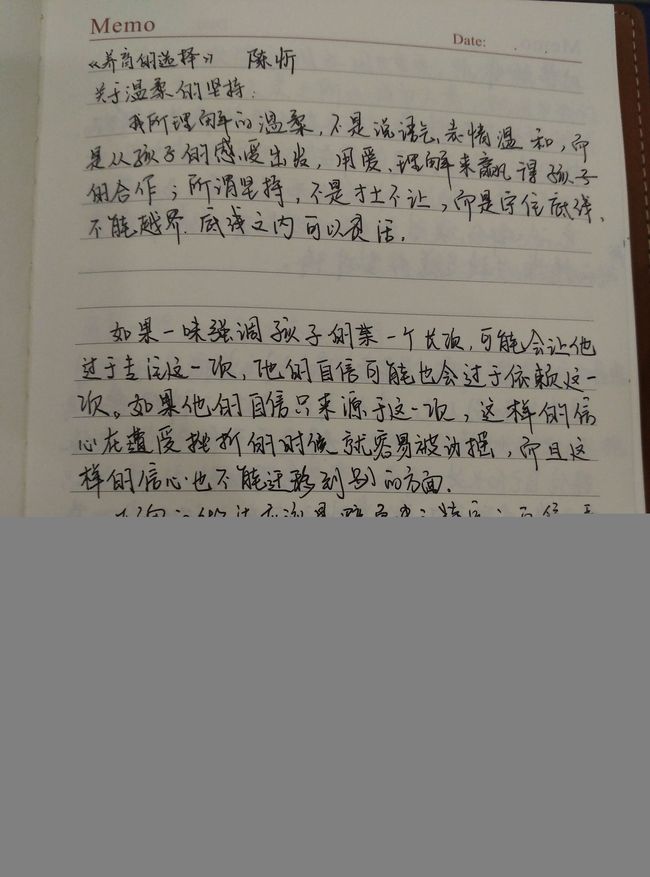 Memo
Date:
《养育的选择》 陈忻
关于温柔的坚持：
我所理解的温柔，不是说语气、表情温和，而
是从孩子的感受出发，用爱、理解来赢得孩子
的合作；所谓坚持，不是寸土不让，而是守住底线、
不能越界．底线之内可以灵活．
如果一味强调孩子的某一个长项，可能会让他
过于专注这一项，他的自信可能也会过于依赖这一
项。如果他的自信只来源于这一项，这样的信
心在遭受挫折的时候就容易被动摇，而且这
样的信心也不能迁移到别的方面．